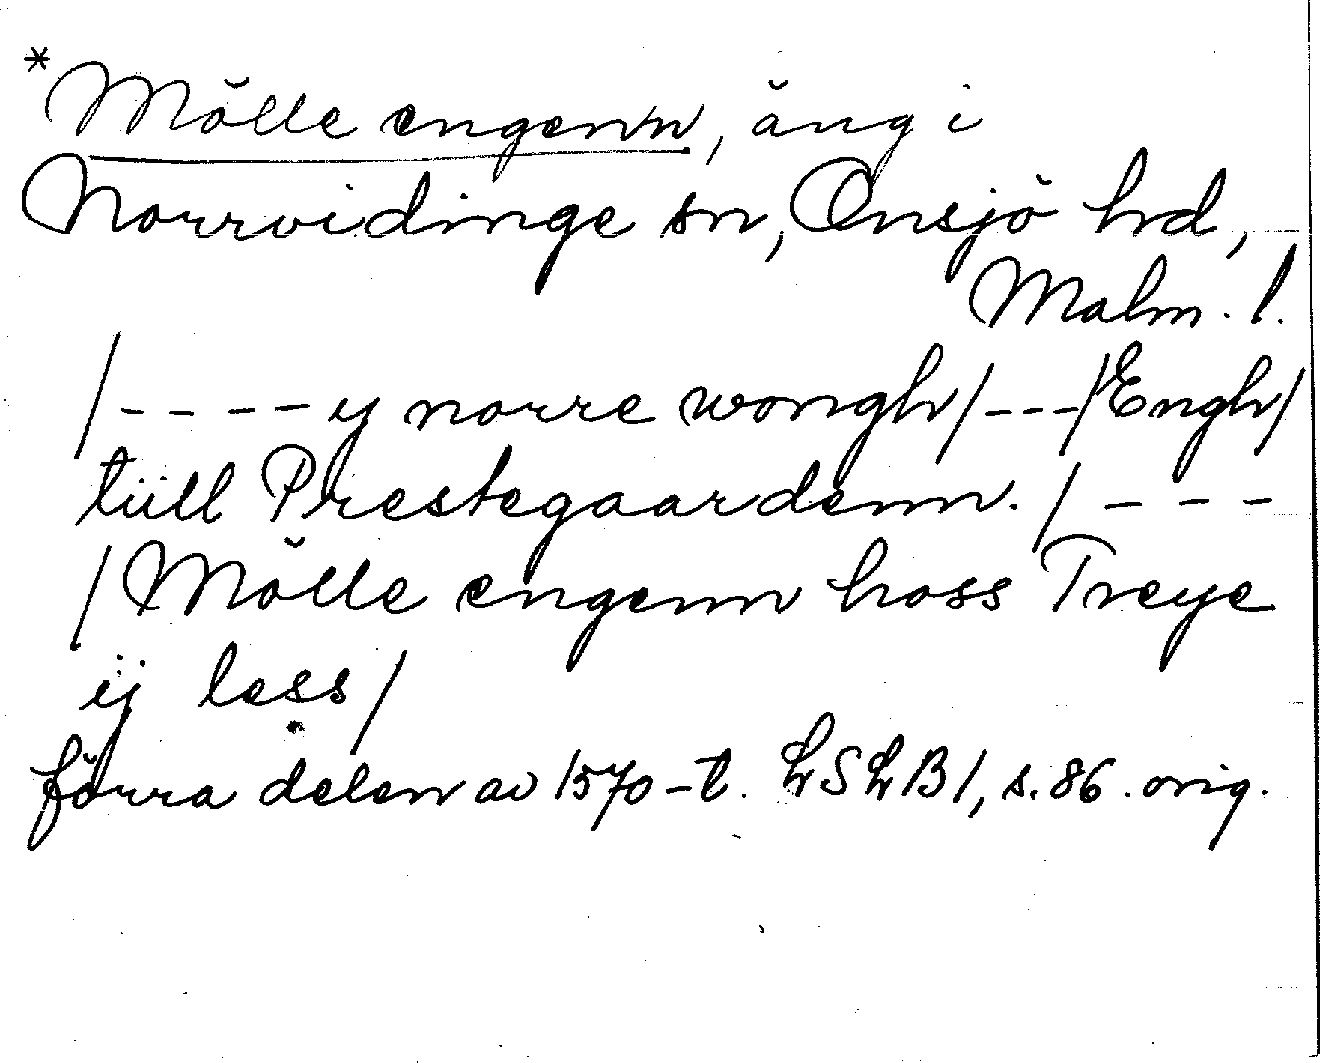 *Mölle engenn, äng i
Norrvidinge sn, Onsjö hd,
Malm. l.
/----y norre wongh/---/Engh/
tüll Prestegaardenn. /---
/Mölle engenn hoss Treye
ij less/
förra delen av 1570-t. LSLB1, s. 86. orig.